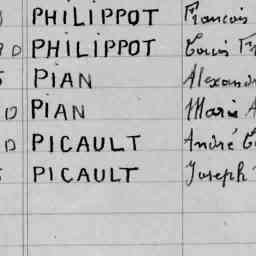 PHILIPPOT Francois
D PHILIPPOT Louis
PIAN Alexand
D PIAN Marie A
D PICAULT André
PICAULT Joseph